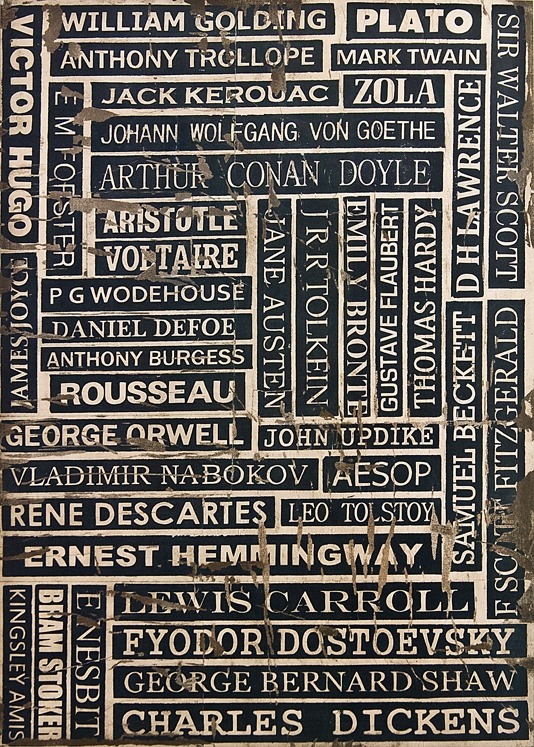 WILLIAM GOLDING
PLATO
SIR WALTER SCOTT
VICTOR HUGO
ANTHONY TROLLOPE
MARK TWAIN
E M FORSTER
JACK KEROUAC
ZOLA
D H LAWRENCE
JOHANN WOLFGANG VON GOETHE
ARTHUR CONAN DOYLE
ARISTOTLE
JANE AUSTEN
J R R TOLKEIN
EMILY BRONTE
GUSTAVE FLAUBERT
THOMAS HARDY
VOLTAIRE
JAMES JOYCE
P G WODEHOUSE
DANIEL DEFOE
SAMUEL BECKETT
F SCOTT FITZGERALD
ANTHONY BURGESS
ROUSSEAU
GEORGE ORWELL
JOHN UPDIKE
VLADIMIR NABOKOV
AESOP
RENE DESCARTES
LEO TOLSTOY
ERNEST HEMMINGWAY
KINGSLEY AMIS
BRAM STOKER
E NESBIT
LEWIS CARROLL
FYODOR DOSTOEVSKY
GEORGE BERNARD SHAW
CHARLES DICKENS